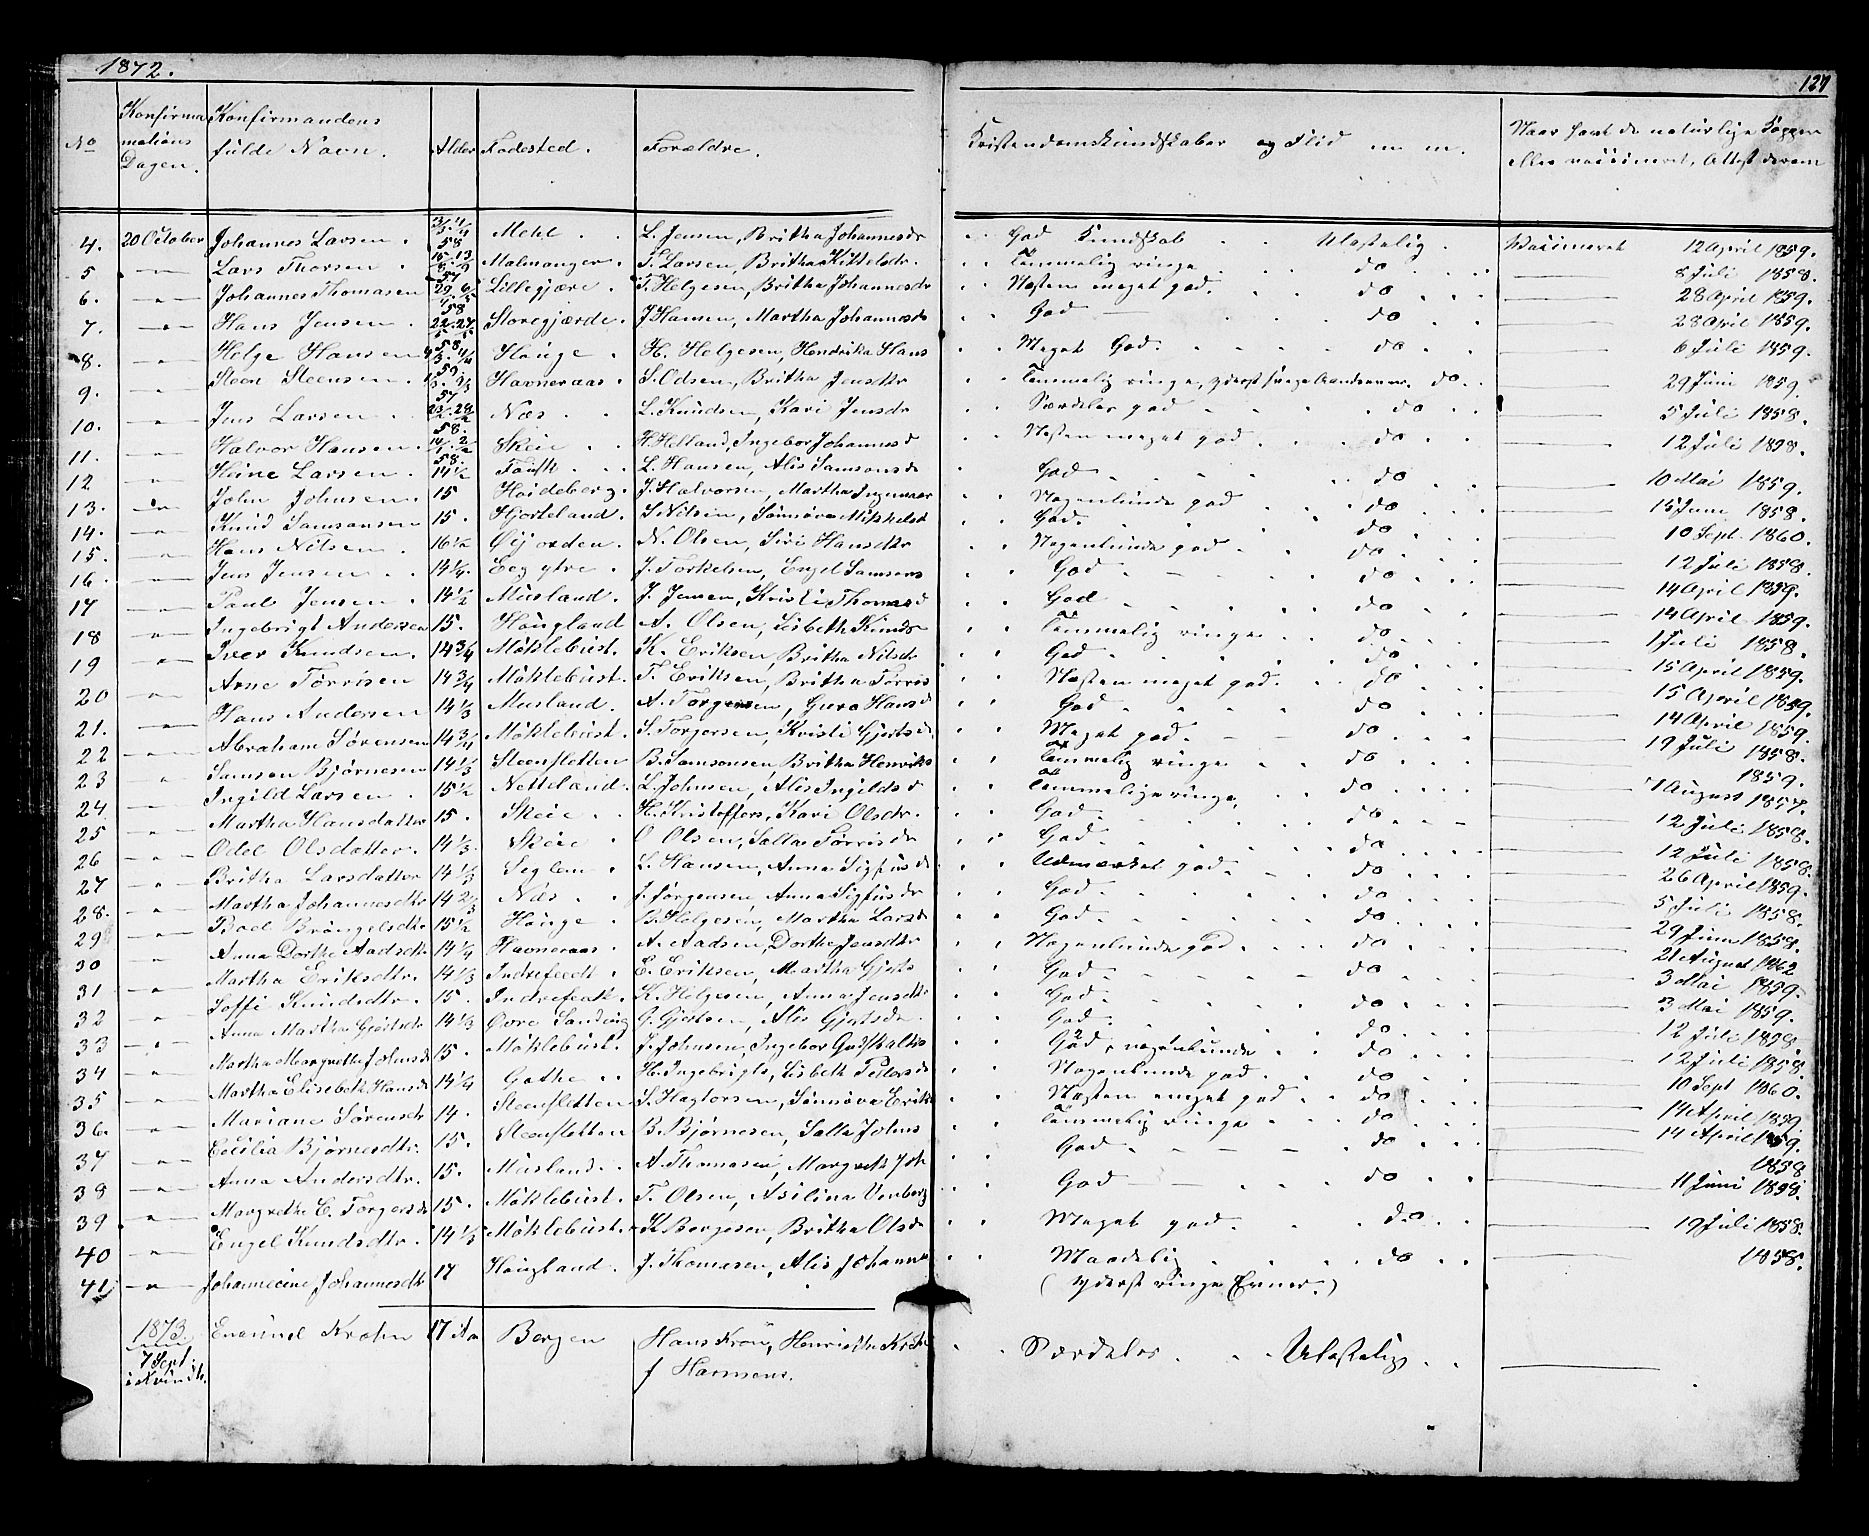 1872.
127
No
Konfirma
mations
Dagen.
Konfirmandens
fulde Navn.
Alder
Fødested.
Forældre.
Kristendomskundskaber og Flid m. m.
Naar havt de naturlige Kopper
eller vaccineret, Attest derom
4. 20 October Johannes Larsen. 58 Mehl L. Jensen, Britha Johannesdr God Kundskab Ulastelig. Vaccineret 12 April 1859.
5 -"- Lars Thorsen 57 Malmanger. T. Larsen, Britha Kittelsdr. Temmelig ringe do 8 Juli 1858.
6. -"- Johannes Thomasen 58 Lillegjære. T. Helgesen, Britha Johannesdr Næsten meget god. do 28 April 1859.
7. -"- Hans Jensen 58 Storegjærde. J Hansen, Martha Johannesdr God do 28 April 1859.
8. -"- Helge Hansen Hauge. H. Helgesen, Hendrika Hans Meget God. do 6 Juli 1859.
9. -"- Steen Steensen. 57 Havneraas. S. Odsen, Britha Jensdtr Temmelig ringe, yderst svage Aandsevner. do. 29 Juni 1859.
10. " Jens Larsen 58. Næs L. Knudsen, Kari Jensdr Særdeles god do 5 Juli 1858.
11. " Halvor Hansen. 58. Skeie H. Helland, Ingebor Johannesd Næsten meget god do 12 Juli 1858.
12 " Heine Larsen 14 1/2 L. Hansen, Alis Samsonsdr God do 10 Mai 1859.
13. -"- John Johnsen. 15 Heideberg. J. Halvorsen, Martha Ingemaar Nogenlunde god do 15 Juni 1858.
14. " Knud Samsonsen 15. Hjorteland. S. Nilsen, Sønnøva Mikkelsd God. do 10 Sept. 1860.
15. " Hans Nilsen 16 1/2 N. Olsen, Siri Hansdtr Nogenlunde god do 12 Juli 1858.
16. -"- Jens Jensen 14 1/4. J. Torkelsen, Engel Samsons God. do 14 April 1859.
17 -"- Paul Jensen 14 1/2 Musland. J. Jensen, Kristi Thomasd God do 14 April 1859.
18 -"- Ingebrigt Andersen 15. Haugland A. Olsen, Lisbeth Knuds Temmelig ringe do 1 Juli 1858.
19 -"- Iver Knudsen. 14 3/4 Møklebust. K. Eriksen, Britha Nilsdr God do 15 April 1859.
20 -"- Arne Tørrisen 14 3/4 Møklebust. T. Eriksen, Britha Tørris Næsten meget god. do 15 April 1859.
21. -"- Hans Andersen 14 1/3 Musland. A. Torgersen, Guro Hansd God do 14 April 1859.
22 -"- Abraham Sørensen 14 3/4 Møklebust. S. Torgersen, Kristi Gjertsdr. Meget god. do 19 Juli 1858.
23 " Samson Bjørnesen 14 1/3 Steensletten B. Samsonsen Britha Henriks Temmelig ringe do 1859.
24 -"- Ingild Larsen 15 1/2 Netteland. L. Johnsen, Alis Ingildsd Temmelig ringe. do 1 August 1857.
25 " Martha Hansdatter 15. Skeie H. Kristoffers, Kari Olsdr. God do 12 Juli 1858.
26 -"- Odel Olsdatter. 14 1/3. Skeie O Olsen, Salla Tørrisdr God do 12 Juli 1858.
27 -"- Britha Larsdatter 14 1/3 Seglem L. Hansen, Anna Sigfusdr. Udmærket god. do 26 April 1859.
28. " Martha Johannesdtr 14 2/3 Næs J. Jørgensen Anna Sigfusdr God. do 5 Juli 1858.
29 -"- 15 1/2 Hauge B. Helgesen, Martha Larsdr God do 29 Juni 1858.
30 " Anna Dorthe Aadsdtr 14 1/4 Havneraas. A. Aadsen, Dorthe Jensdtr Nogenlunde god do 21 August 1862
31 -"- Martha Eriksdtr. 14 1/3 E. Eriksen, Martha Gjerts God do 3 Mai 1859.
32 -"- Soffi Knudsdtr. 15. K. Helgesen, Anna Jensdtr God. do 3 Mai 1859.
33 -"- Anna Martha Gjertsdr 14 1/3 G. Gjertsen, Alis Gjertsdr. God. do 12 Juli 1858.
34 -"- Martha Margrethe Johnsdr 15. Møklebust. J. Johnsen, Ingebor God, nogenlunde do 12 Juli 1858.
35 -"- Martha Elisebeth Hansdr 14 1/4 H. Ingebrigts, Lisbeth Petersdr Nogenlunde god. do 10 Sept 1860.
36. -"- Mariane Sørensdr 14. Steensletten S. Sønnøva Erik Næsten meget god do 14 April 1859.
37 -"- Cecilia Bjørnesdtr. 15. Steensletten B. Bjørnesen, Salla Johns Temmelig ringe do 14 April 1859.
38 -"- Anna Andersdtr. 15. Musland. A. Thomasen, Margreth Joh God do 1858
39 -"- Margrethe E. Torgersdr 15. Møklebust. T. Olsen, God do 11 Juni 1858.
40 -"- Engel Knudsdtr. 14 1/3 Møklebust. K. Børgesen, Britha Olsdr Meget god. do 19 Juli 1858.
41 -"- Johannecine Johannesdtr 17 Haugland. J. Thomasen, Alis Johanne Maadelig do 1858.
(yderst ringe Evner.)
1873. Krohn 17 Aar Bergen Hans Krohn, Særdeles Ulastelig
7 Sept. f Harmens.